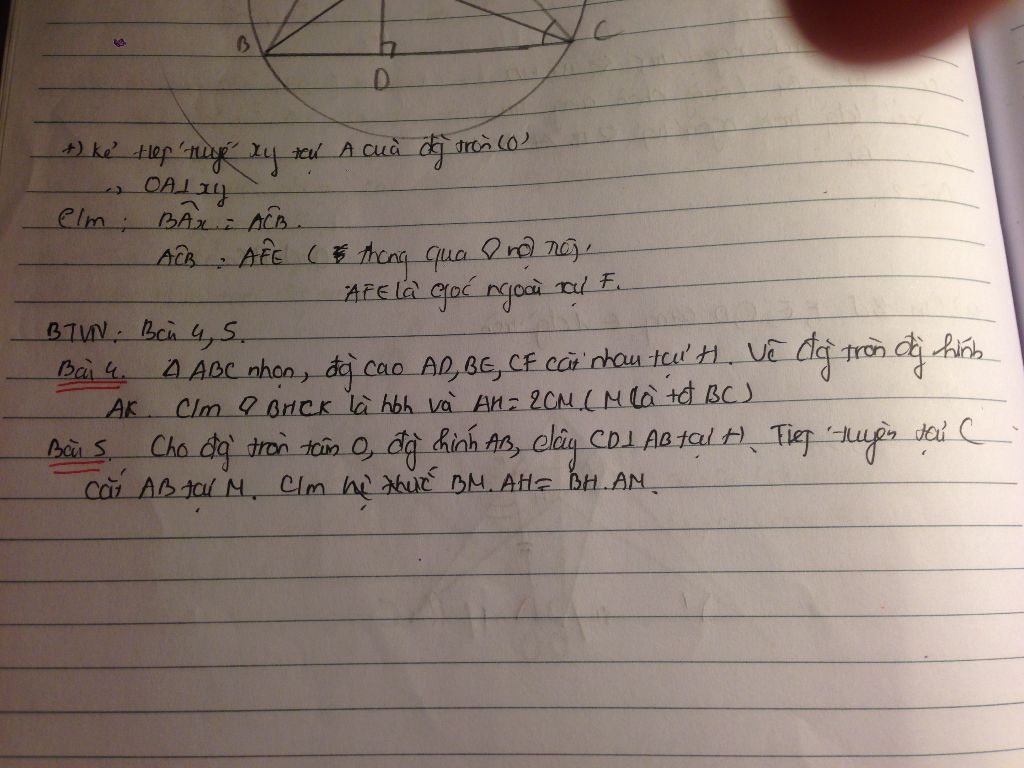 B C
D
+) Kẻ tiếp tuyến xy tại A của đg tròn (O)
→ OA⊥xy
C/m : BÂx = AĈB.
AĈB = AF̂E ( thông qua ◊ nội tiếp,
AFE là góc ngoài tại F.
BTVN: Bài 4, 5.
Bài 4. Δ ABC nhọn, đg cao AD, BE, CF cắt nhau tại H. Vẽ đg tròn đg kính
AK. C/m ◊ BHCK là hbh và AH = 2OM. (M là tđ BC)
Bài 5. Cho đg tròn tâm O, đg kính AB, dây CD⊥AB tại H. Tiếp tuyến tại C
cắt AB tại M. C/m hệ thức BM.AH = BH.AM.